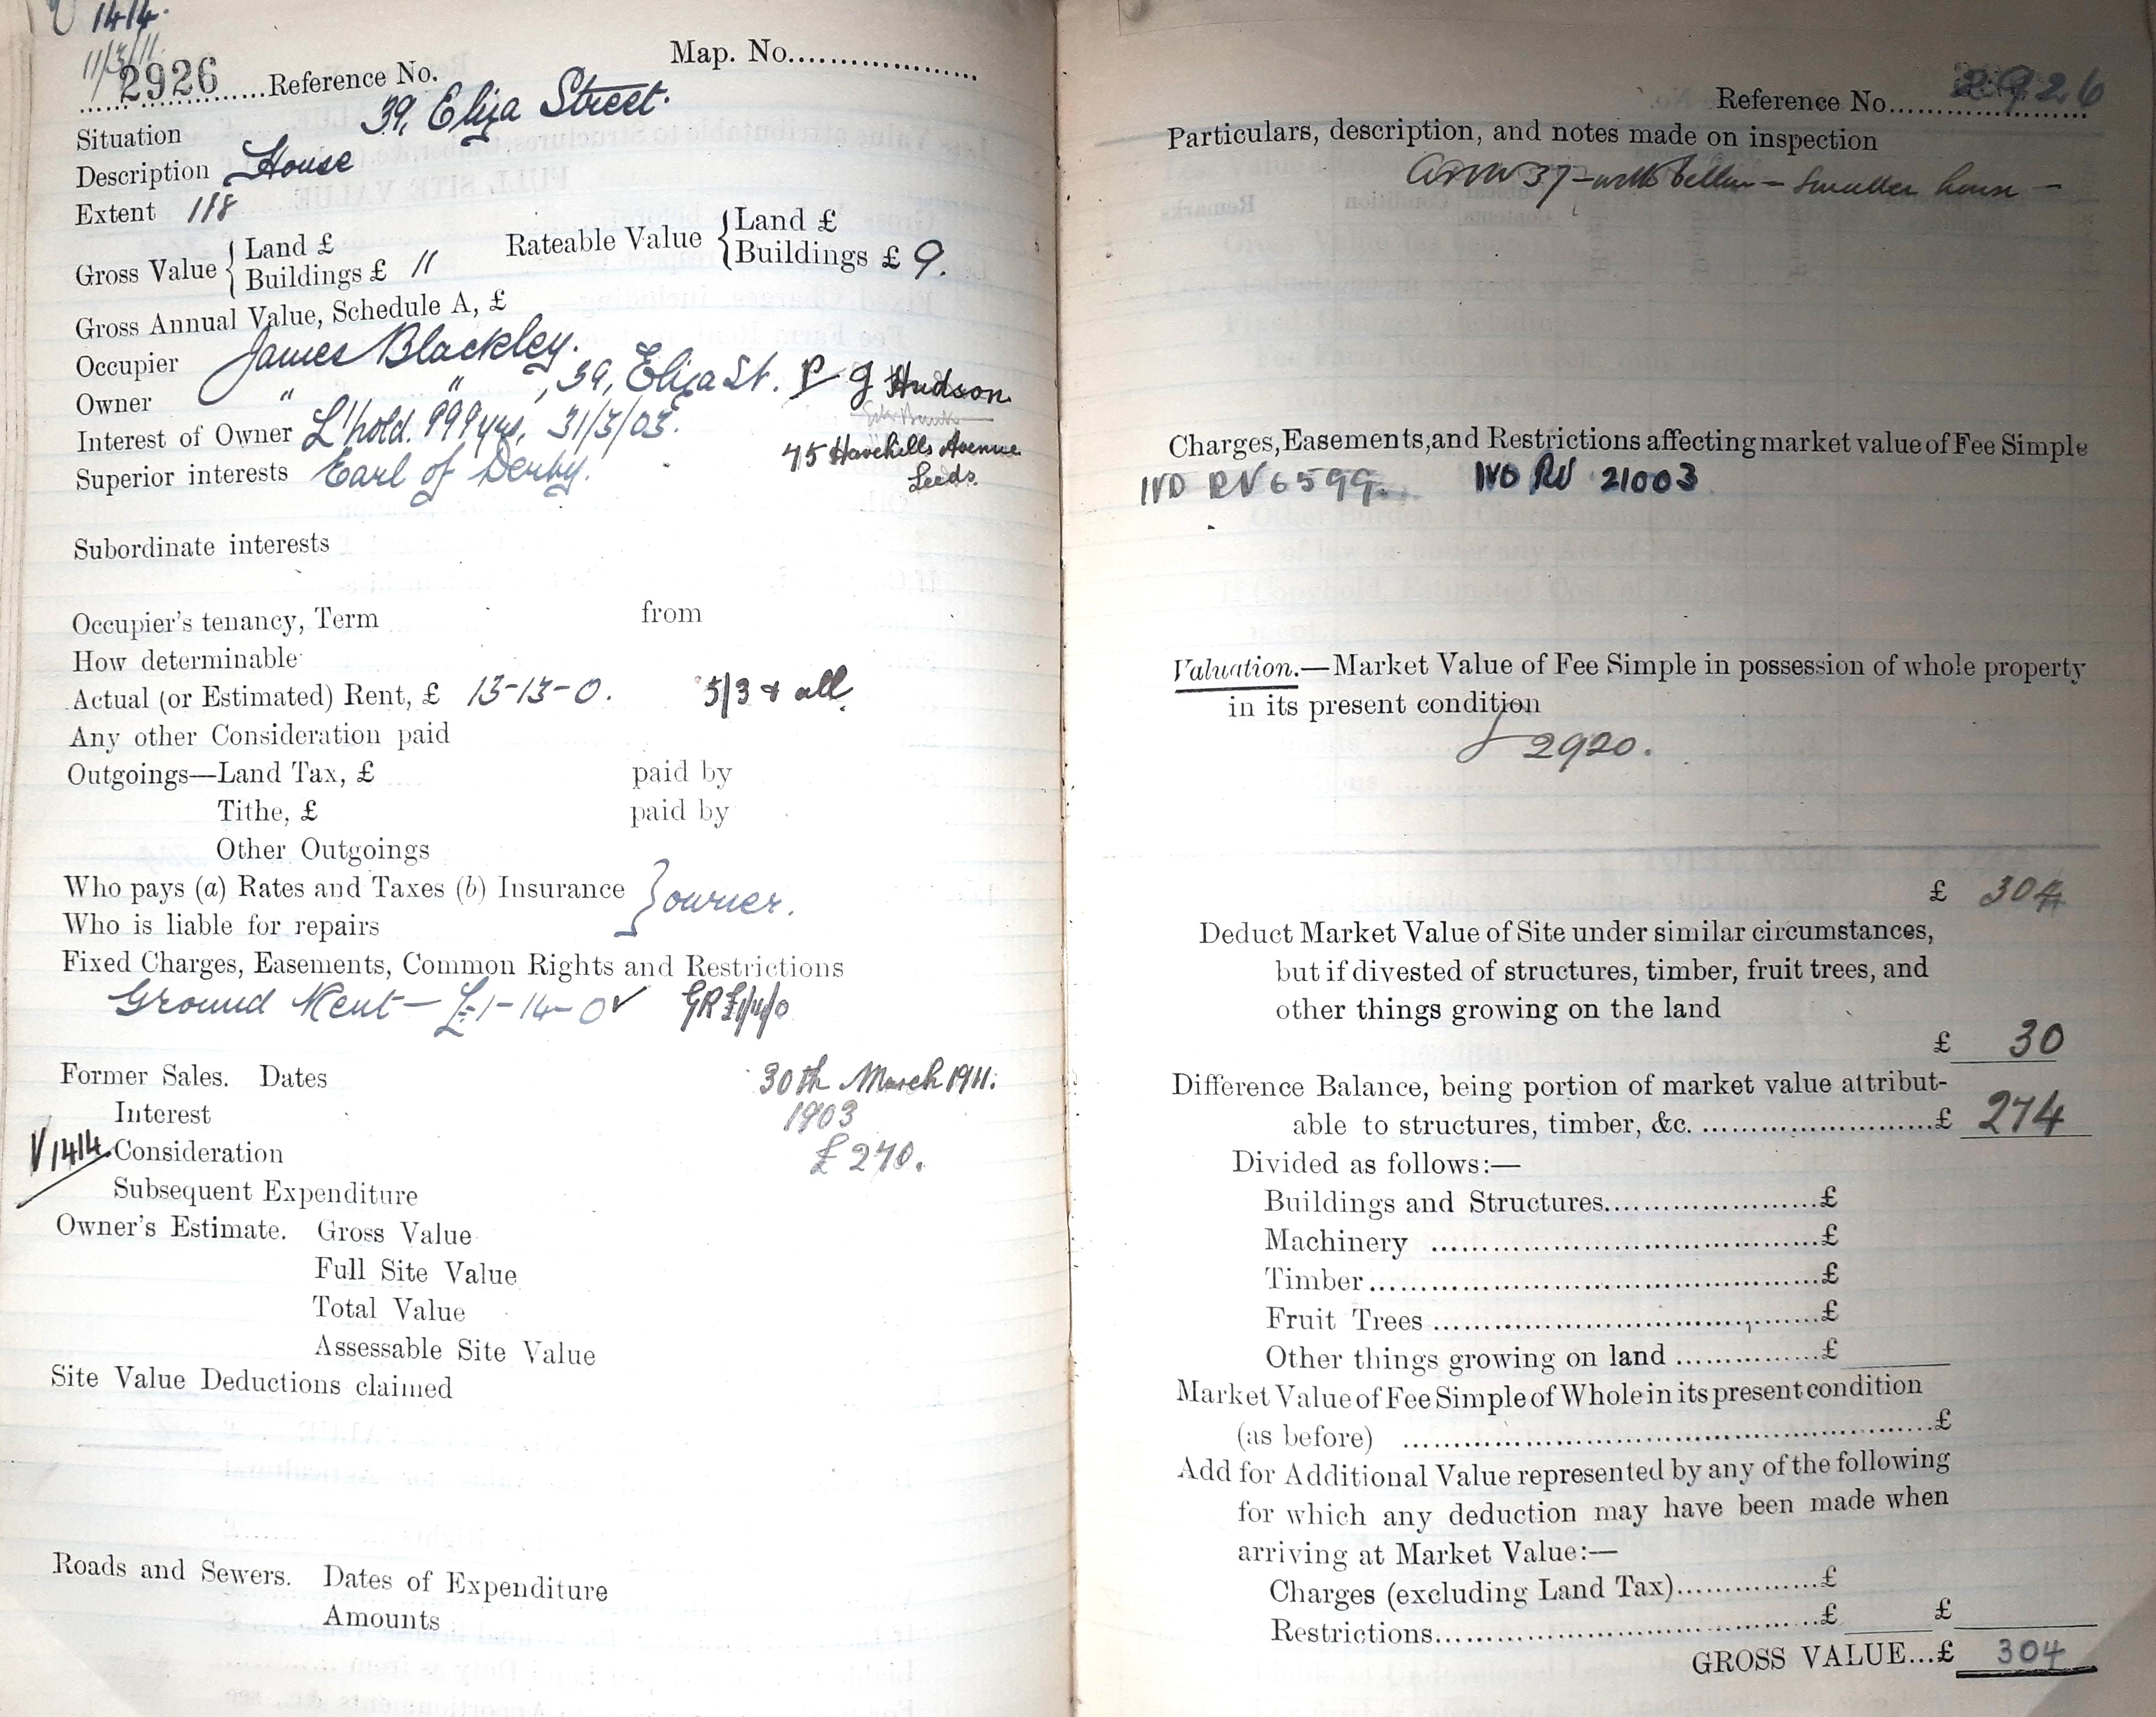 1414.
11/3/11.
2926 Reference No. Map. No.
Situation 39, Eliza Street.
Description House
Extent 118
Gross Value { Land £
Buildings £ 11
Rateable Value { Land £
Buildings £ 9.
Gross Annual Value, Schedule A, £
Occupier James Blackley.
Owner " " , 39, Eliza St. P J Hudson
Interest of Owner L'hold. 999 yrs. 31/3/03.
45 Avenue
Superior interests Earl of Derby.
Leeds.
Subordinate interests
Occupier's tenancy, Term from
How determinable
Actual (or Estimated) Rent, £ 13-13-0. 5/3 & all.
Any other Consideration paid
Outgoings—Land Tax, £ paid by
Tithe, £ paid by
Other Outgoings
Who pays (a) Rates and Taxes (b) Insurance } owner.
Who is liable for repairs
Fixed Charges, Easements, Common Rights and Restrictions
Ground Rent — £1-14-0 ✓ GR £1/14/0
Former Sales. Dates 30th March 1911.
Interest 1903
V1414 Consideration £270.
Subsequent Expenditure
Owner's Estimate. Gross Value
Full Site Value
Total Value
Assessable Site Value
Site Value Deductions claimed
Roads and Sewers. Dates of Expenditure
Amounts
Reference No. 2926
Particulars, description, and notes made on inspection
37 - - Smaller house —
Charges, Easements, and Restrictions affecting market value of Fee Simple
IVD RV 6599. IVD RV 21003
Valuation.—Market Value of Fee Simple in possession of whole property
in its present condition
2920.
£ 304
Deduct Market Value of Site under similar circumstances,
but if divested of structures, timber, fruit trees, and
other things growing on the land
£ 30
Difference Balance, being portion of market value attribut-
able to structures, timber, &c. £ 274
Divided as follows:—
Buildings and Structures £
Machinery £
Timber £
Fruit Trees £
Other things growing on land £
Market Value of Fee Simple of Whole in its present condition
(as before) £
Add for Additional Value represented by any of the following
for which any deduction may have been made when
arriving at Market Value:—
Charges (excluding Land Tax) £
Restrictions £ £
GROSS VALUE...£ 304